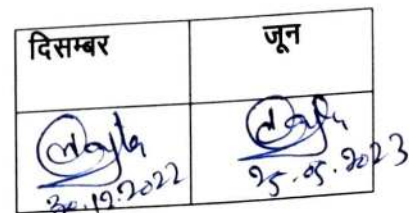 दिसम्बर जून
30.12.2022 25.05.2023